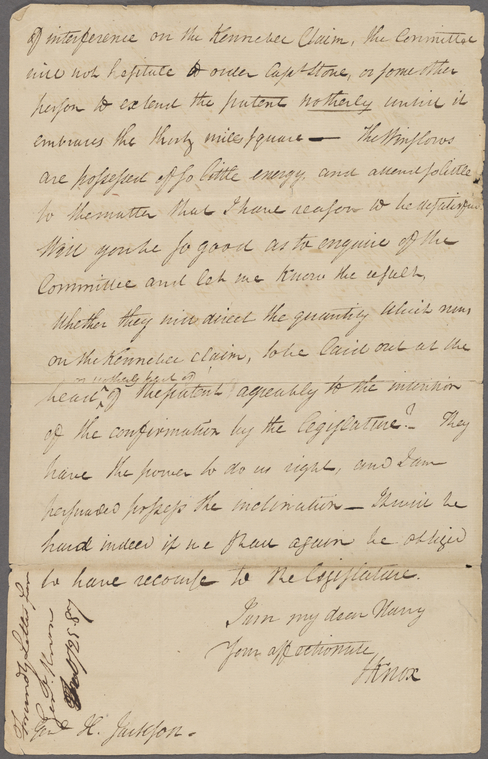 of interference on the Kennebec Claim, the Committee
will not hesitate to order Capt Stone, or some other
person to extend the patent northerly until it
embraces the thirty miles square — The Winslows
are possessed of so little energy and attend so little
to the matter that I have reason to be dissatisfied
Will you be so good as to enquire of the
Committee and let me know the result,
Whether they will direct the quantity which runs
on the Kennebec claim, to be laid out at the
or northerly part of
head of the patent agreeably to the intention
of the confirmation by the legislature? – They
have the power to do us right, and I am
persuaded possess the inclination – It will be
hard indeed if we shall again be obliged
to have recourse to the Legislature.
I am my dear Harry
Your affectionate
HKnox
Genl H. Jackson.
Friendly Letter from
Genl Knox
25 87